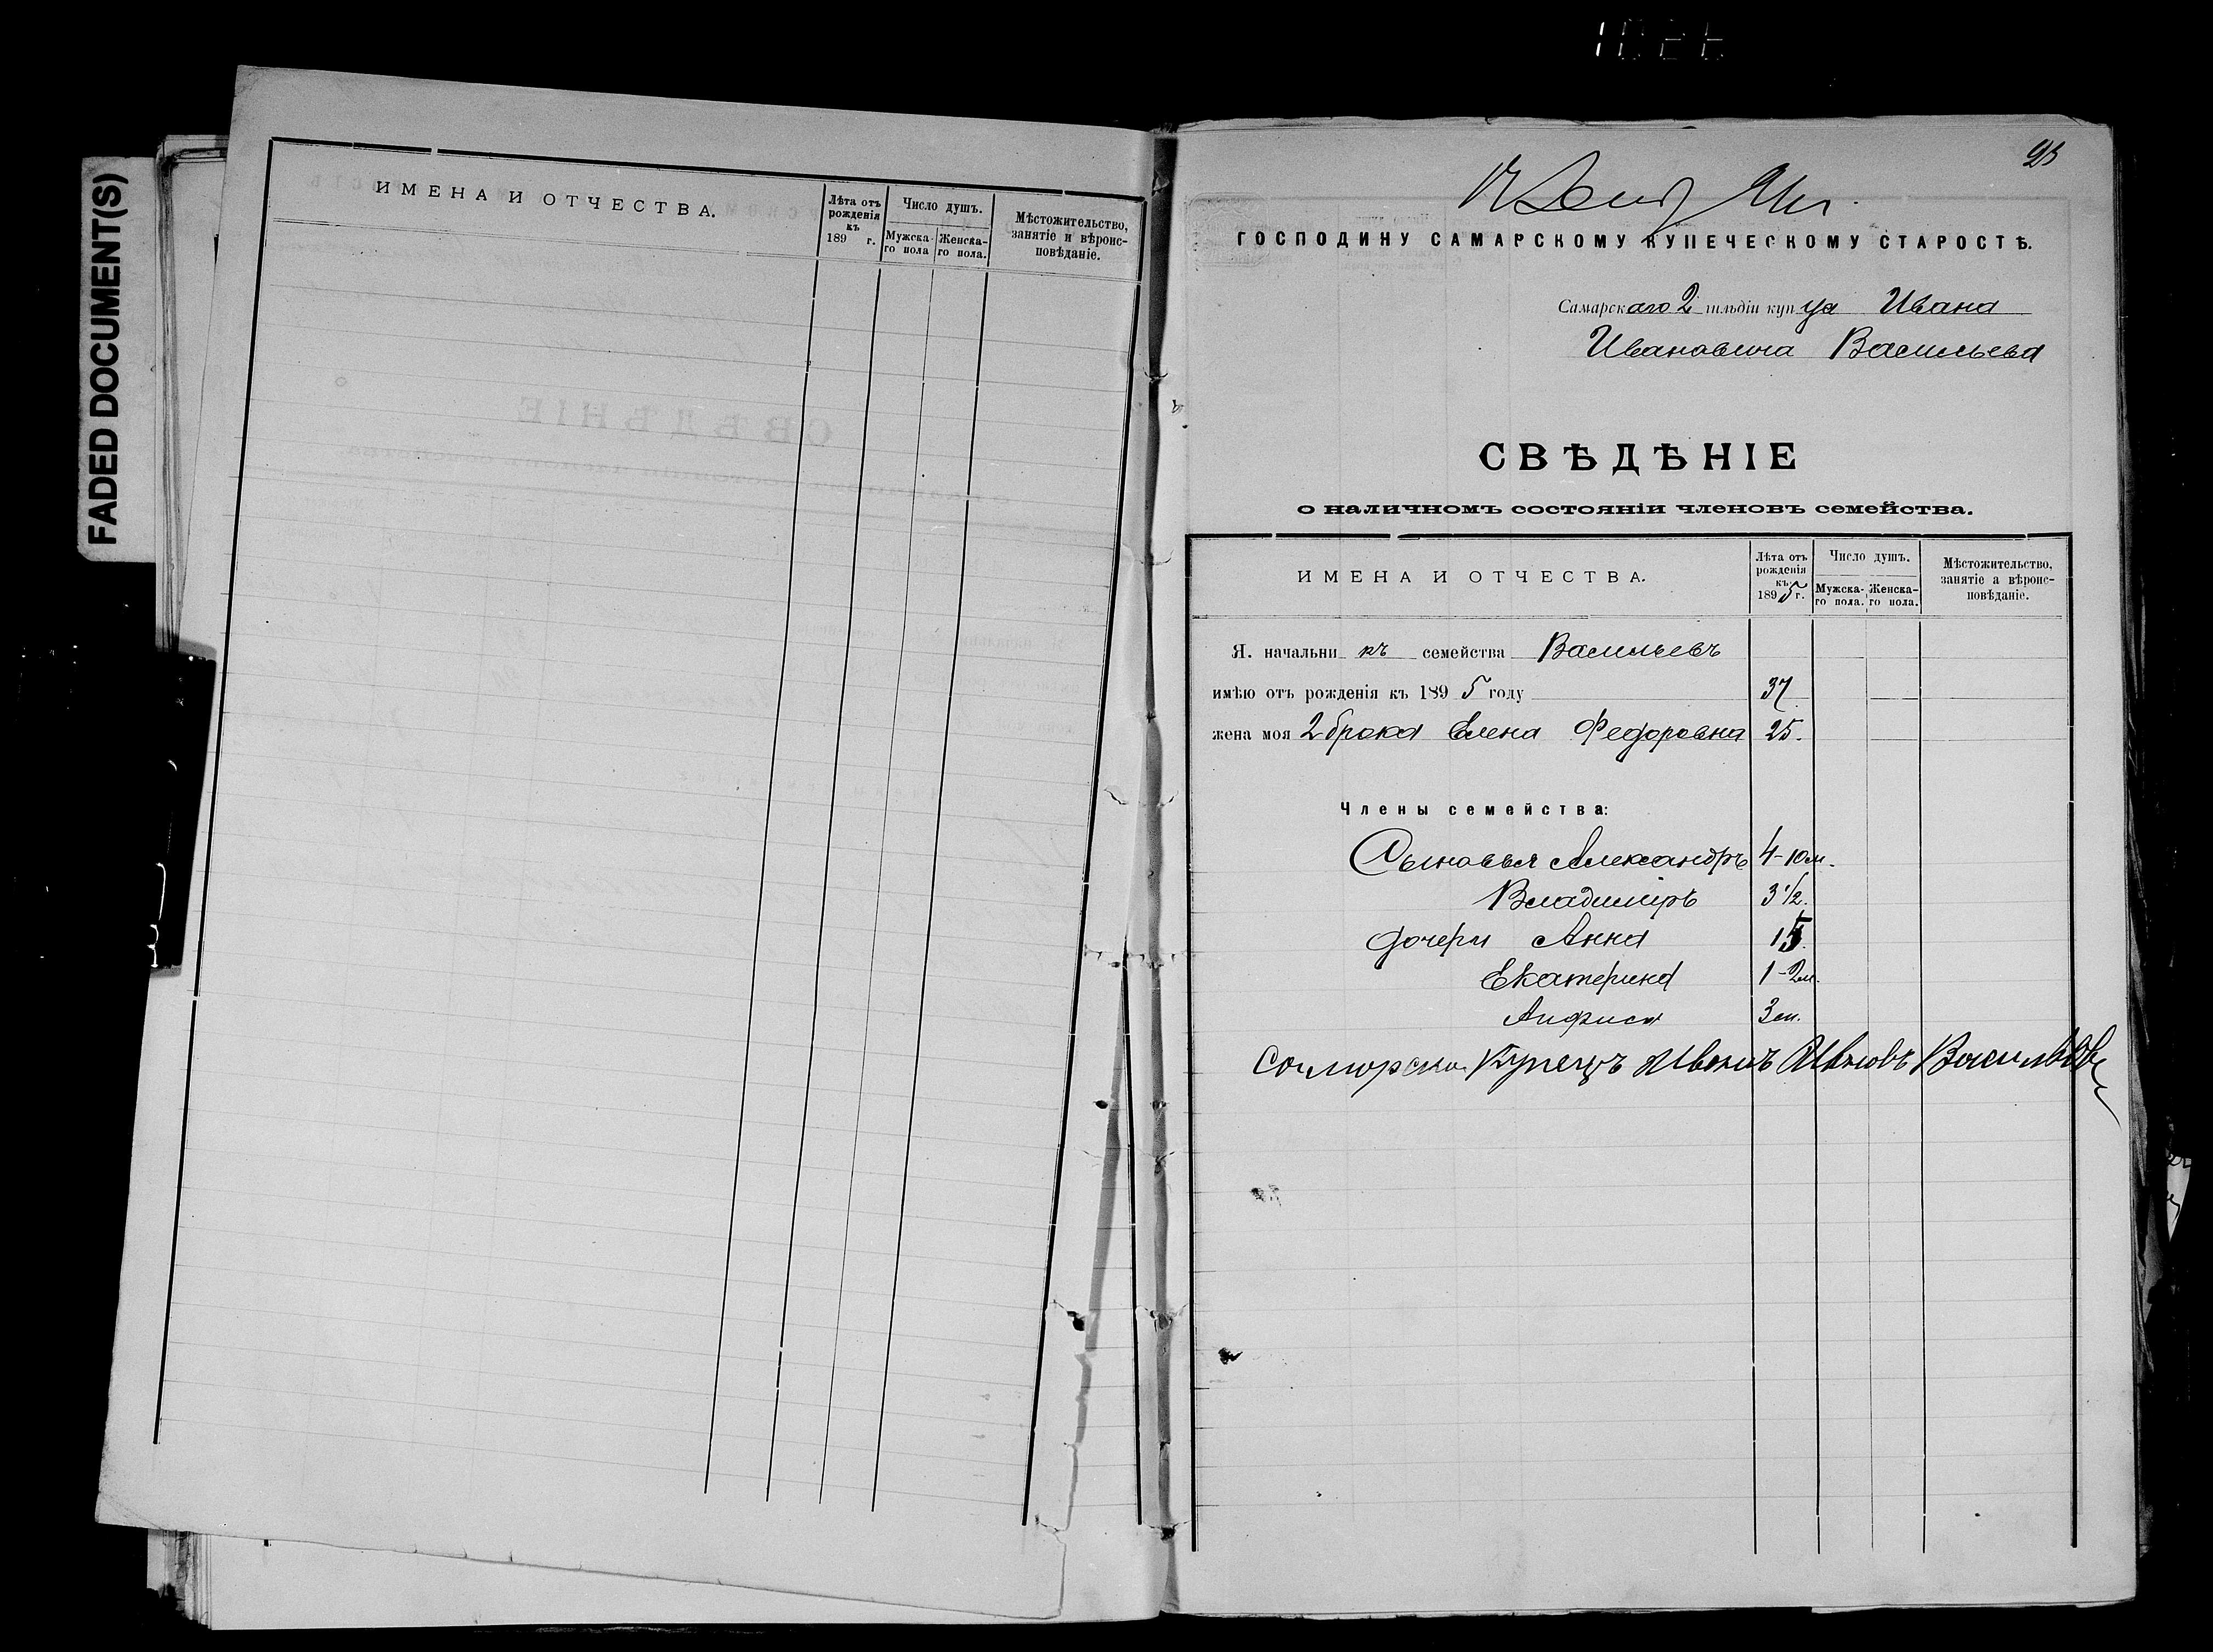 FADED DOCUMENT(S)
ИМЕНА И ОТЧЕСТВА.
Лѣта отъ рожденія къ 189 г.
Число душъ.
Мужска-го пола
Женска-го пола.
Мѣстожительство, занятіе и вѣроис-повѣданіе.
ГОСПОДИНУ САМАРСКОМУ КУПЕЧЕСКОМУ СТАРОСТѢ.
Самарскаго 2 гильдіи купца Ивана
Ивановича Васильева
СВѢДѢНІЕ
о наличномъ состояніи членовъ семейства.
ИМЕНА И ОТЧЕСТВА.
Лѣта отъ рожденія къ 1895 г.
Число душъ.
Мужска-го пола.
Женска-го пола.
Мѣстожительство, занятіе а вѣроис-повѣданіе.
Я. начальникъ семейства Васильевъ
имѣю отъ рожденія къ 1895 году 37
жена моя 2 брака Елена Федоровна 25.
Члены семейства:
Сыновья Александръ 4-10м.
Владиміръ 3 1/2.
дочери Анна 15.
Екатерина 1-2м.
Анфиса 3 м.
Купецъ Иванъ Ивновъ Васильевъ